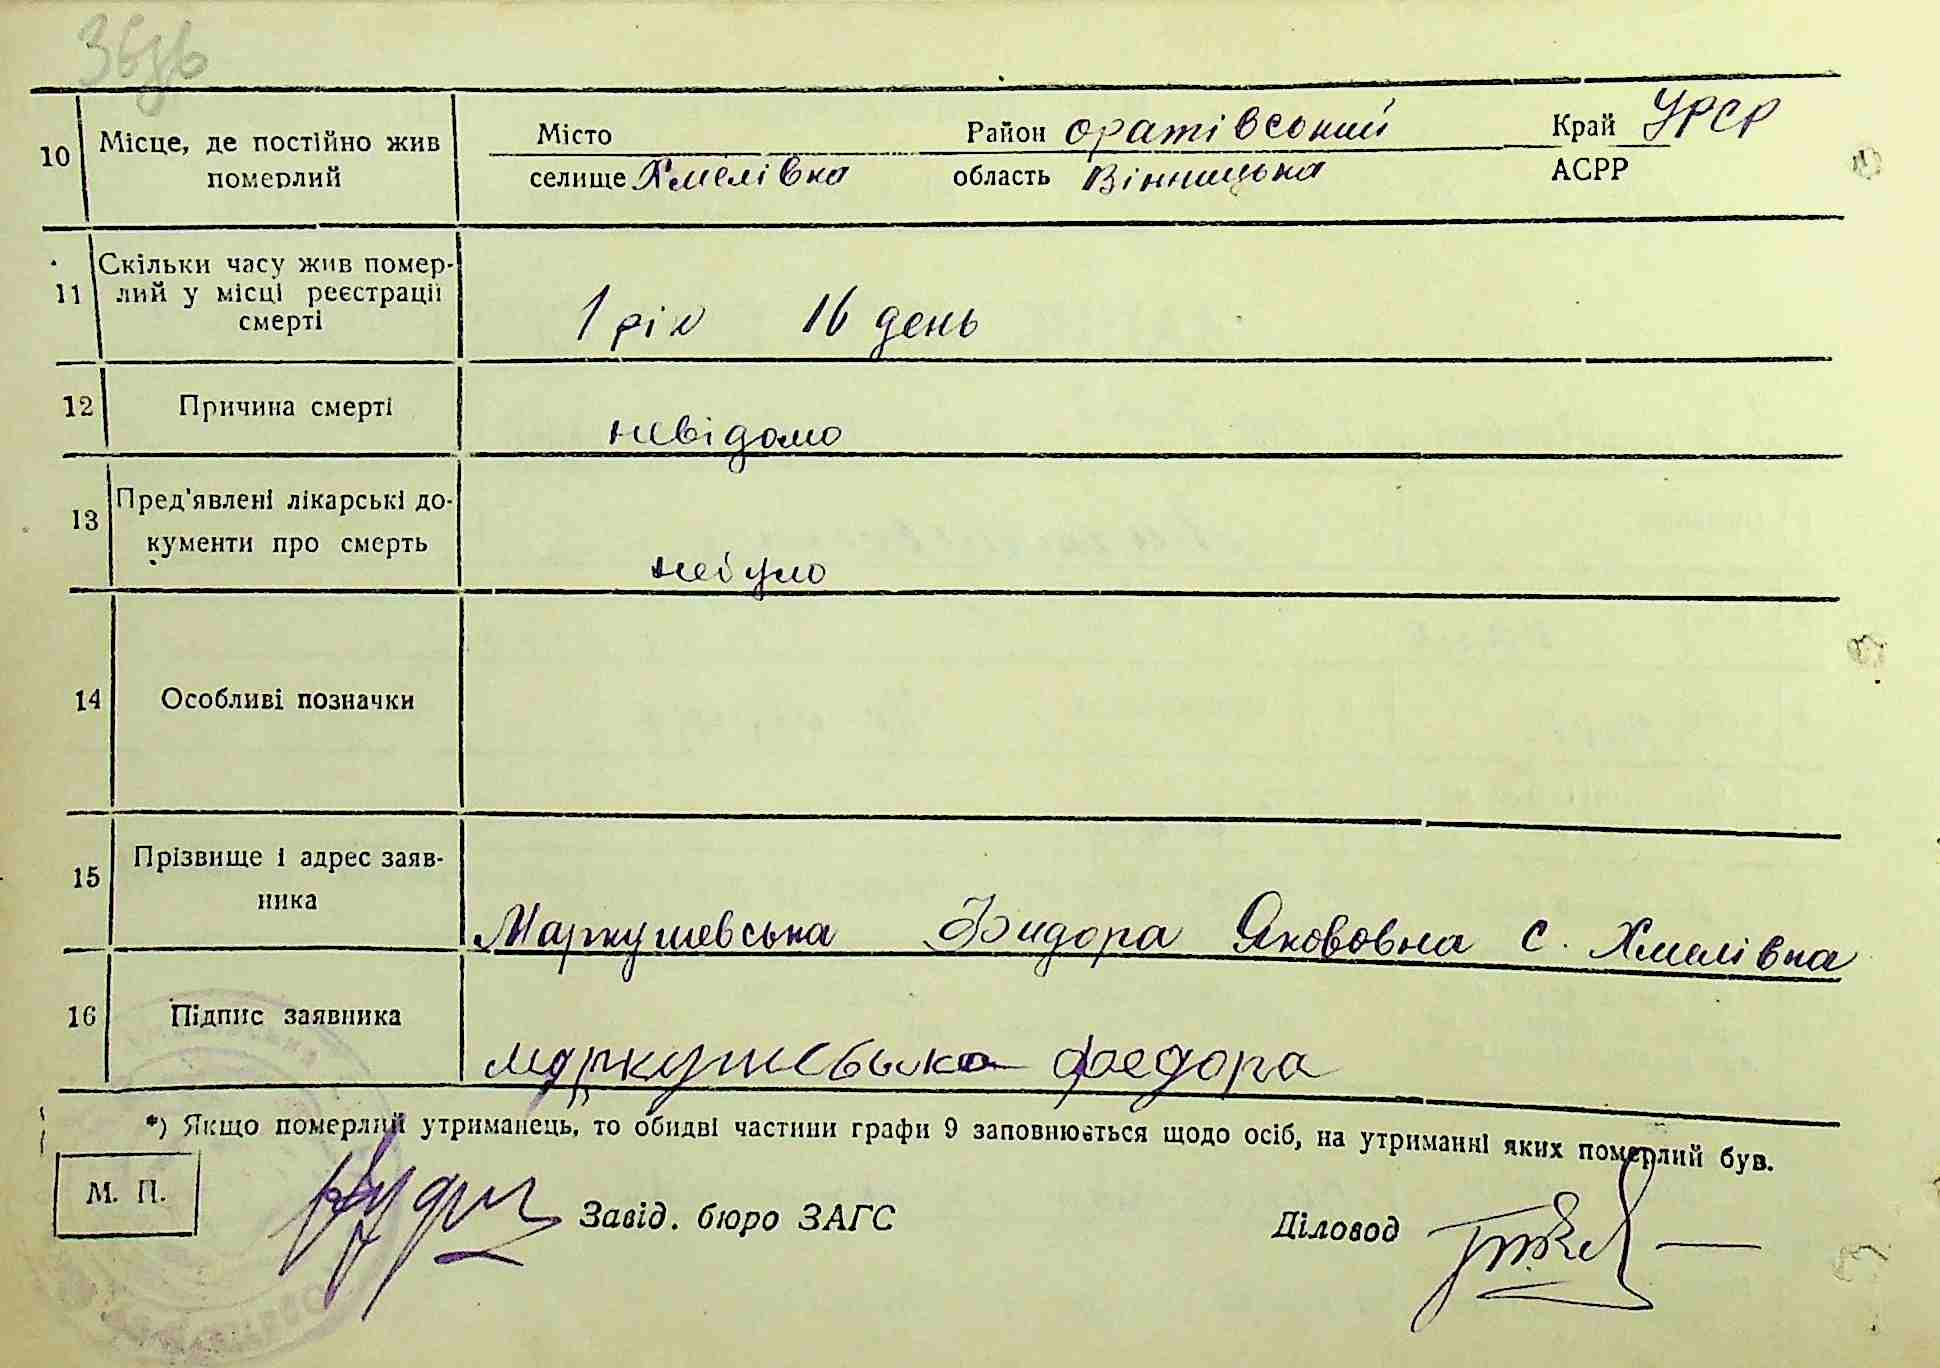 10 Місце, де постійно жив померлий
Місто Район оратівський Край УРСР
селище Хмелівка область Вінницька АСРР
11 Скільки часу жив помер-
лий у місці реєстрації
смерті
1 рік 16 день
12 Причина смерті
невідомо
13 Пред'явлені лікарські до-
кументи про смерть
небуло
14 Особливі позначки
15 Прізвище і адрес заяв-
ника
Маркушевська Фидора Якововна с. Хмелівка
16 Підпис заявника
маркушевська федора
*) Якщо померлий утриманець, то обидві частини графи 9 заповнюється щодо осіб, на утриманні яких померлий був.
М. П.
Завід. бюро ЗАГС Діловод